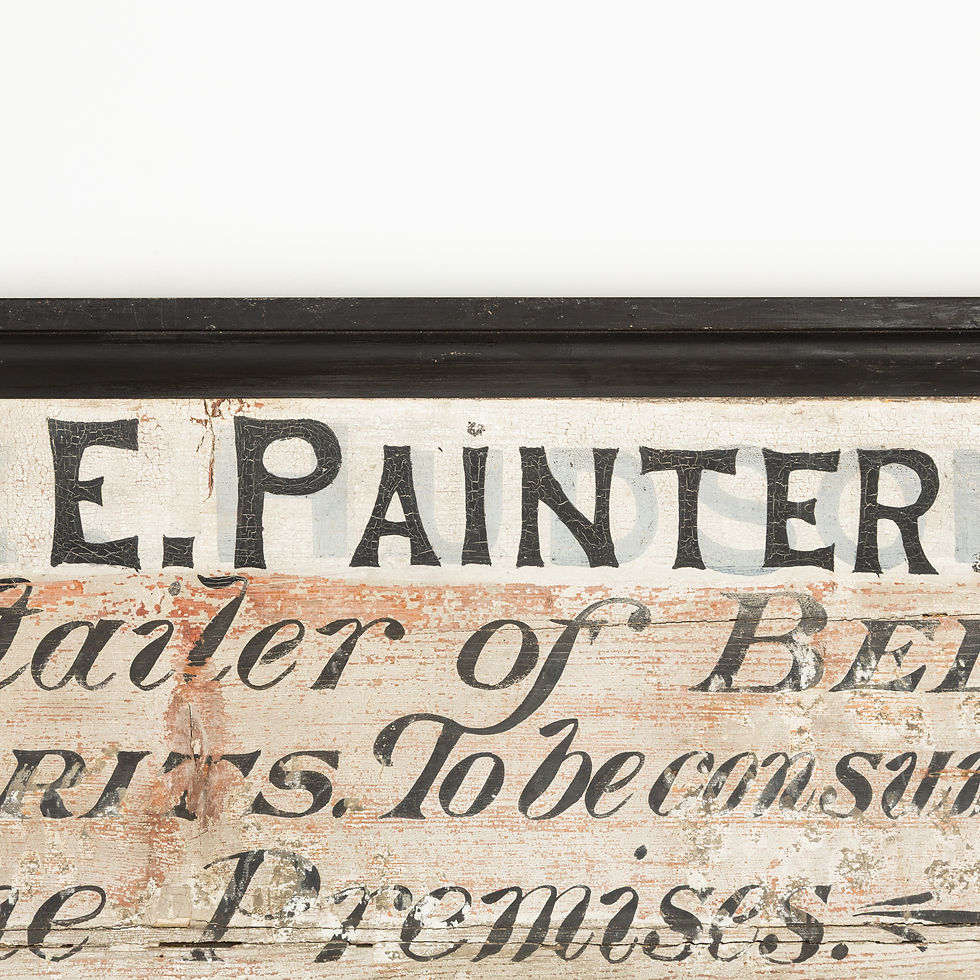 E. PAINTER
tailer of BEE
RITS. To be consum
e Premises.